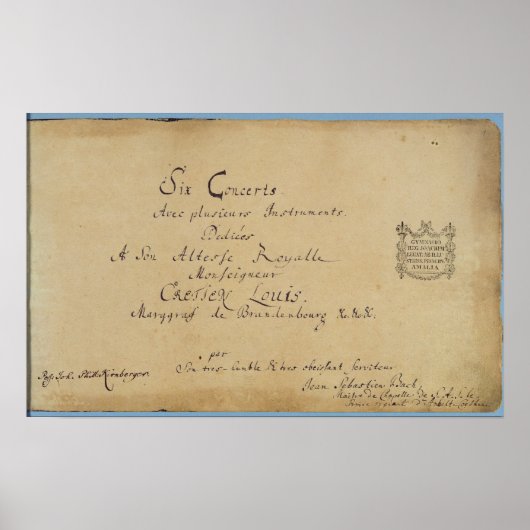 Six Concerts
Avec plusieurs Instruments.
Dediées
A Son Altesse Royalle
Monseigneur
CRETIEN LOUIS.
Marggraf de Brandenbourg &c.&c.&c.
par
Son tres-humble & tres obeissant Serviteur
Jean Sebastien Bach.
Maitre de Chapelle de S. A. S. le
Prince regnant d'Anhalt-Cothen.
Poss. Joh. Phil. Kirnberger.
GYMNASIO
REG. JOACHIM
LEGAT. AB ILL.
PRINCIP.
AMALIA